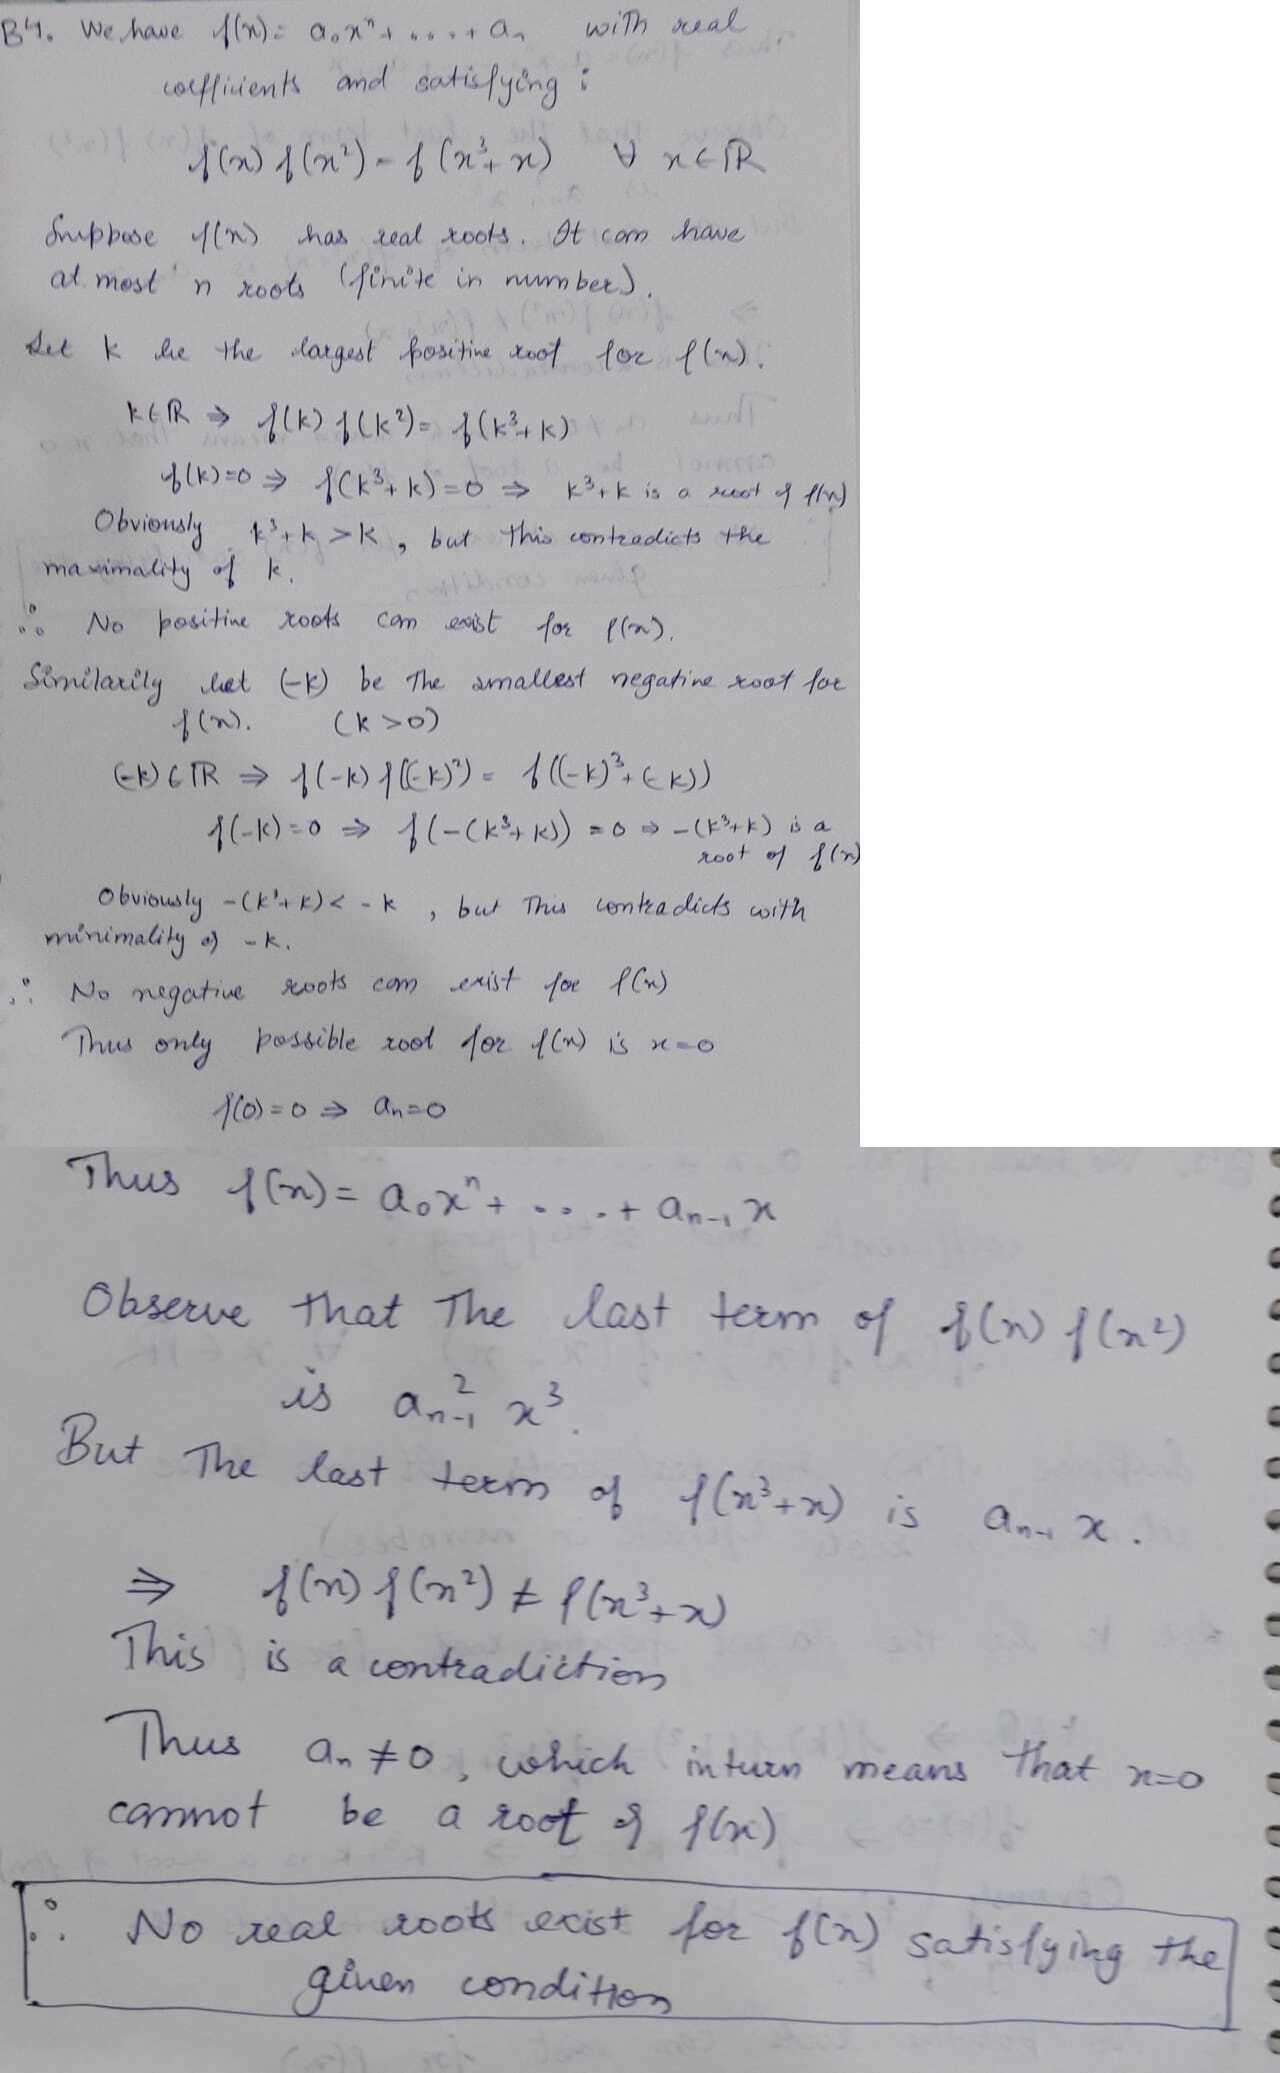 B4. We have f(x) = a₀xⁿ + .... + aₙ with real
coefficients and satisfying :
f(x) f(x²) = f(x³ + x) ∀ x ∈ ℝ
Suppose f(x) has real roots. It can have
at most n roots (finite in number).
Let k be the largest positive root for f(x).
k ∈ ℝ ⇒ f(k) f(k²) = f(k³ + k)
f(k) = 0 ⇒ f(k³ + k) = 0 ⇒ k³ + k is a root of f(x)
Obviously k³ + k > k , but this contradicts the
maximality of k.
∴ No positive roots can exist for f(x).
Similarily let (-k) be the smallest negative root for
f(x). (k > 0)
(-k) ∈ ℝ ⇒ f(-k) f((-k)²) = f((-k)³ + (-k))
f(-k) = 0 ⇒ f(-(k³ + k)) = 0 ⇒ -(k³ + k) is a
root of f(x)
Obviously -(k³ + k) < -k , but this contradicts with
minimality of -k.
∴ No negative roots can exist for f(x)
Thus only possible root for f(x) is x = 0
f(0) = 0 ⇒ aₙ = 0
Thus f(x) = a₀xⁿ + .... + aₙ₋₁ x
Observe that the last term of f(x) f(x²)
is aₙ₋₁² x³.
But the last term of f(x³ + x) is aₙ₋₁ x.
⇒ f(x) f(x²) ≠ f(x³ + x)
This is a contradiction
Thus aₙ ≠ 0, which inturn means that x = 0
cannot be a root of f(x)
∴ No real roots exist for f(x) satisfying the
given condition